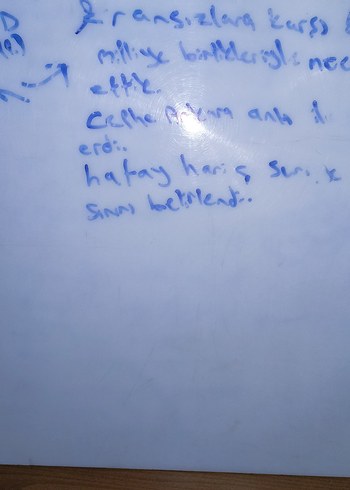 D Fransızlara karşı
milliye birlikleriyle
ettik.
Cephe Ankara antl
erdi.
hatay hariç Suri
sınırı belirlendi.